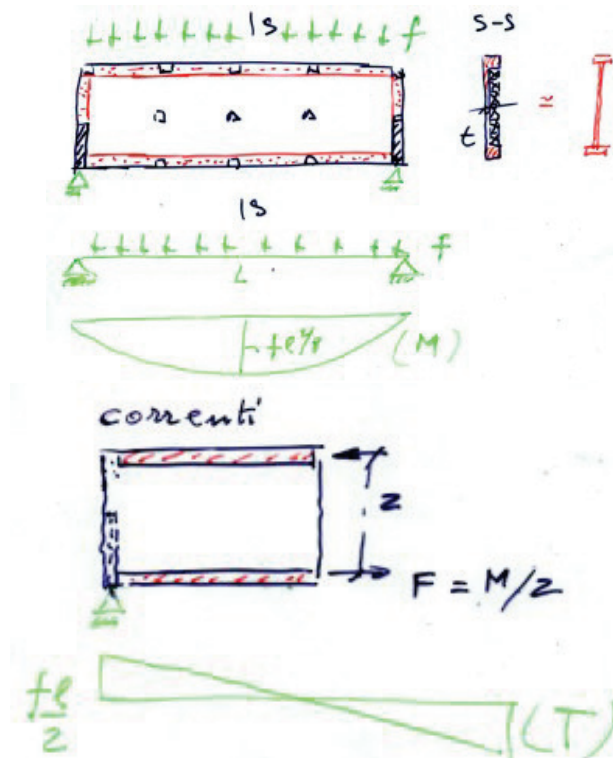 S S-S
f
t =
S
f
L
fl²/8 (M)
correnti
z
F = M/z
fl/2 (T)